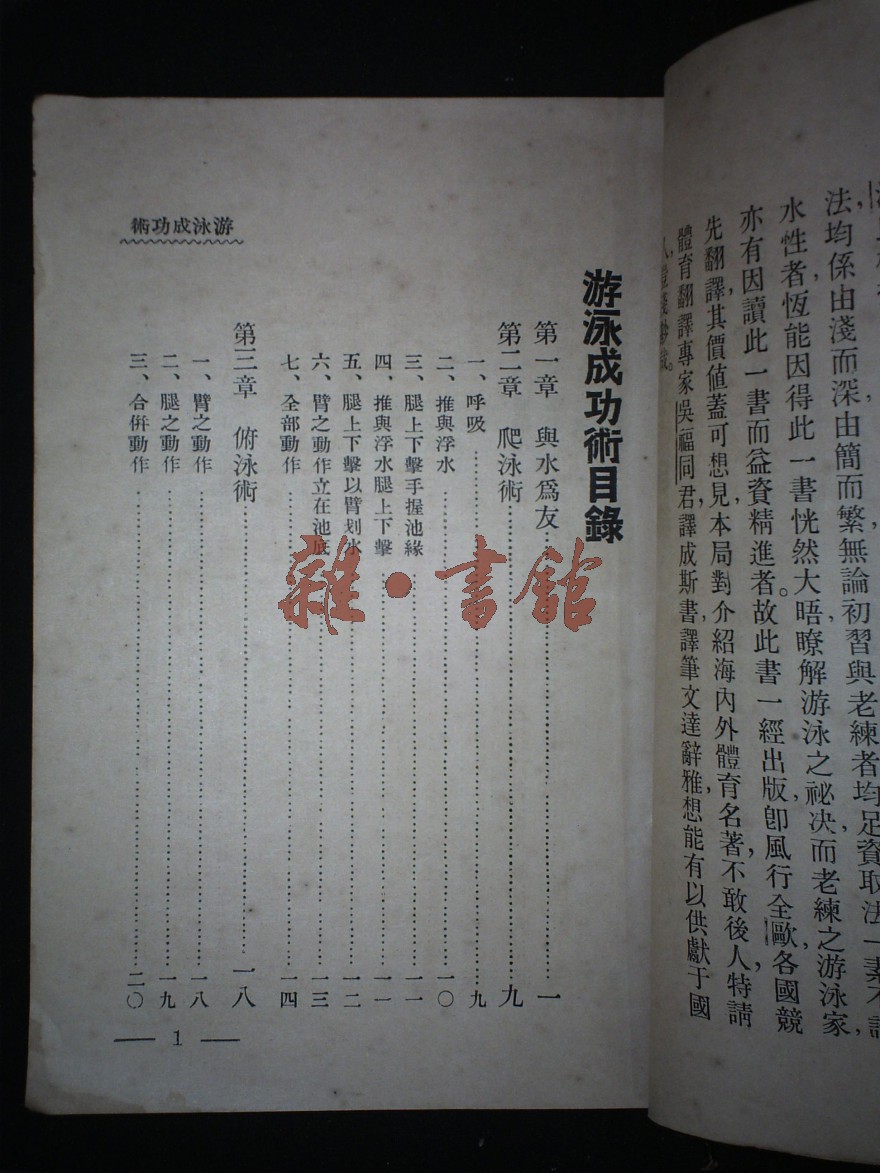 法,均係由淺而深,由簡而繁,無論初習與老練者,均足資取法,一素不諳
水性者,恆能因得此一書,恍然大晤,瞭解游泳之祕決,而老練之游泳家,
亦有因讀此一書,而益資精進者。故此書一經出版,卽風行全歐,各國競
先翻譯,其價值蓋可想見,本局對介紹海內外體育名著,不敢後人,特請
體育翻譯專家吳福同君,譯成斯書,譯筆文達辭雅,想能有以供獻于國
游泳成功術
游泳成功術目錄
第一章 與水爲友……一
第二章 爬泳術……九
一、呼吸……九
二、推與浮水……一〇
三、腿上下擊手握池緣……一一
四、推與浮水腿上下擊……一一
五、腿上下擊以臂划水……一二
六、臂之動作立在池底……一三
七、全部動作……一四
第三章 俯泳術……一八
一、臂之動作……一八
二、腿之動作……一九
三、合併動作……二〇
— 1 —
雜·書館